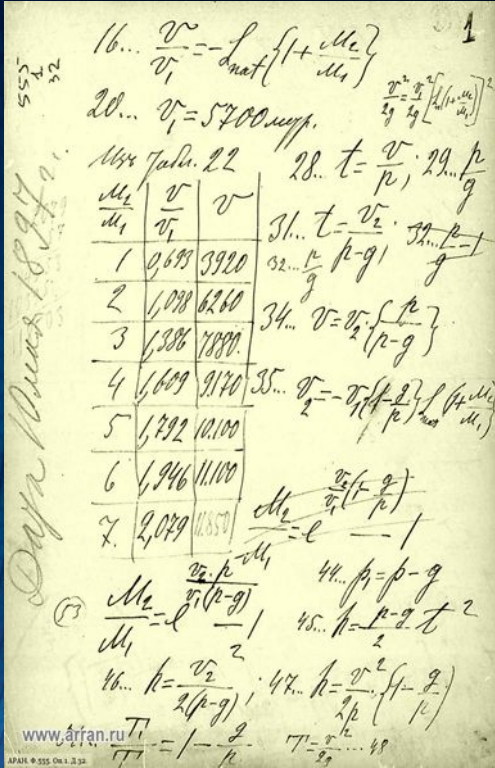 1
555
1
32
16... v/v₁ = -L nat {1 + M₂/M₁}
v²/2g = v₁²/2g [L nat (1 + M₂/M₁)]²
20... v₁ = 5700 метр.
Из табл. 22
28... t = v/p; 29... p/g
M₂/M₁ | v/v₁ | v
1 | 0,693 | 3920
2 | 1,098 | 6260
3 | 1,386 | 7880.
4 | 1,609 | 9170
5 | 1,792 | 10.100
6 | 1,946 | 11.100
7. | 2,079 | 11.850
31... t = v₂/(p-g);
32... p/g - 1
32... p/g
34... v = v₂ {p/(p-g)}
35... v₂ = -v₁ {1 - g/p} L nat (1 + M₂/M₁)
M₂/M₁ = e^(v₂/v₁ (1 - g/p)) - 1
53
M₂/M₁ = e^(v₂·p/v₁(p-g)) - 1
44... p₁ = p - g
45... h = (p-g)/2 t²
46... h = v₂²/2(p-g); 47... h = v²/2p {1 - g/p}
T₁/T = 1 - g/p
T = v²/2g ... 48
1897 г.
www.arran.ru
АРАН. Ф.555. Оп.1. Д.32.